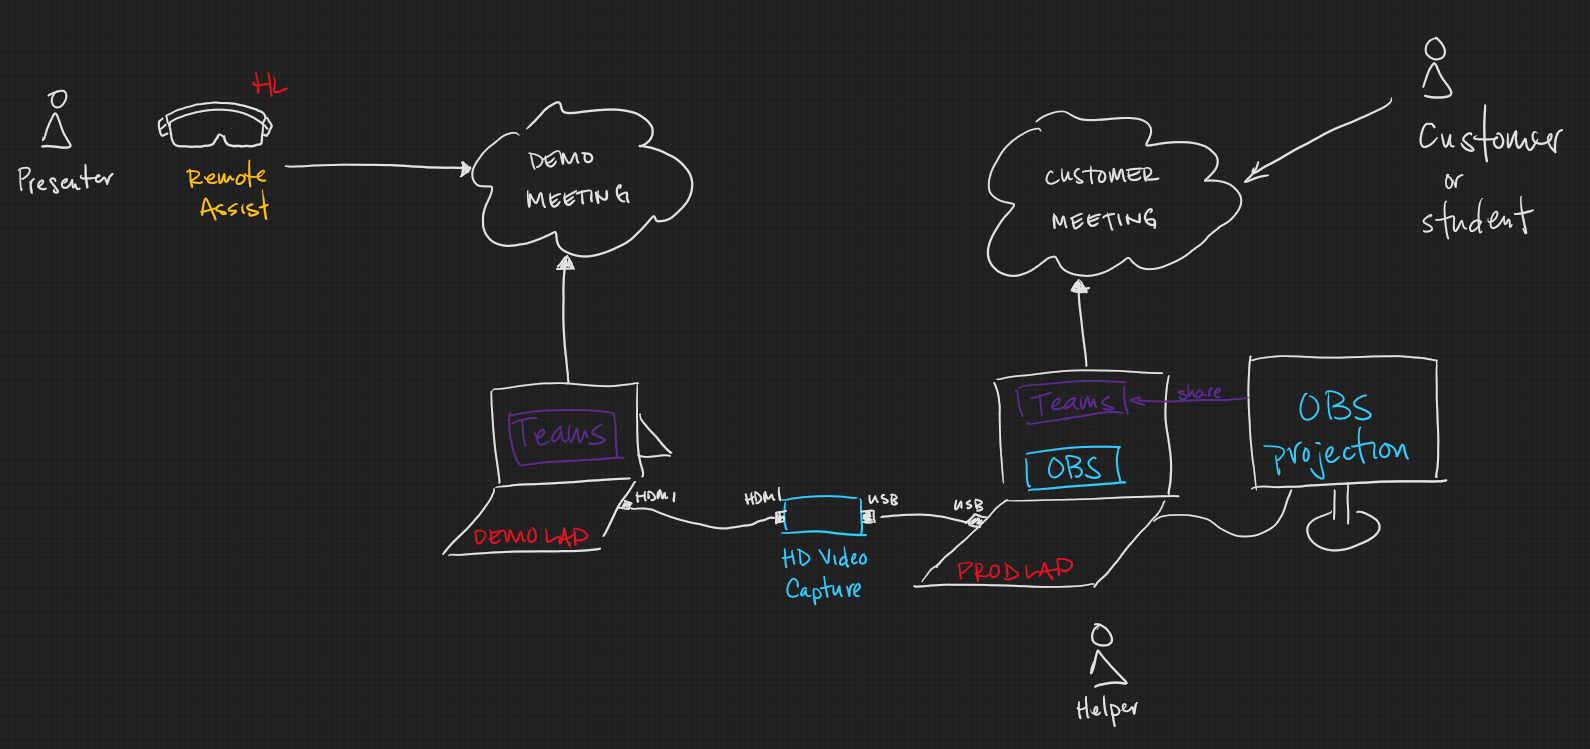 HL
Presenter
Remote
Assist
DEMO
MEETING
CUSTOMER
MEETING
Customer
or
student
Teams
HDMI
DEMO LAP
HDMI
USB
HD Video
Capture
USB
Teams
share
OBS
PROD LAP
OBS
projection
Helper